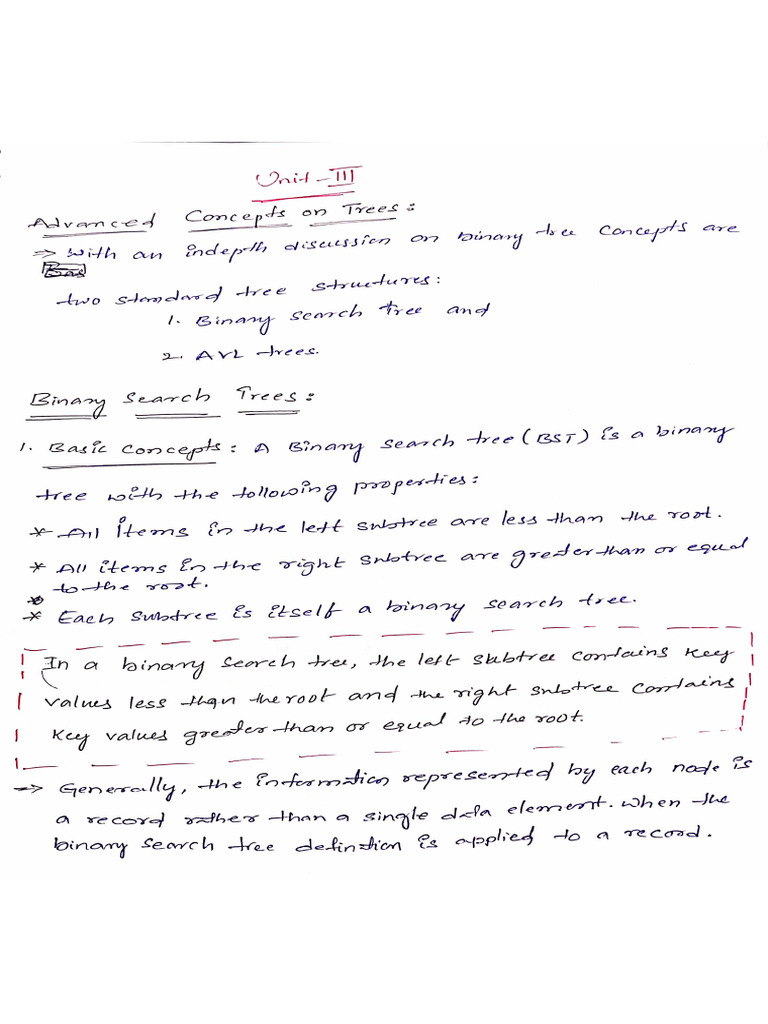 Unit-III
Advanced Concepts on Trees:
=> With an indepth discussion on binary tree concepts are
two standard tree structures:
1. Binary search tree and
2. AVL trees.
Binary Search Trees:
1. Basic Concepts: A Binary search tree (BST) is a binary
tree with the following properties:
* All items in the left subtree are less than the root.
* All items in the right subtree are greater than or equal
to the root.
* Each subtree is itself a binary search tree.
In a binary search tree, the left subtree contains key
values less than the root and the right subtree contains
key values greater than or equal to the root.
=> Generally, the information represented by each node is
a record rather than a single data element. When the
binary search tree defintion is applied to a record.